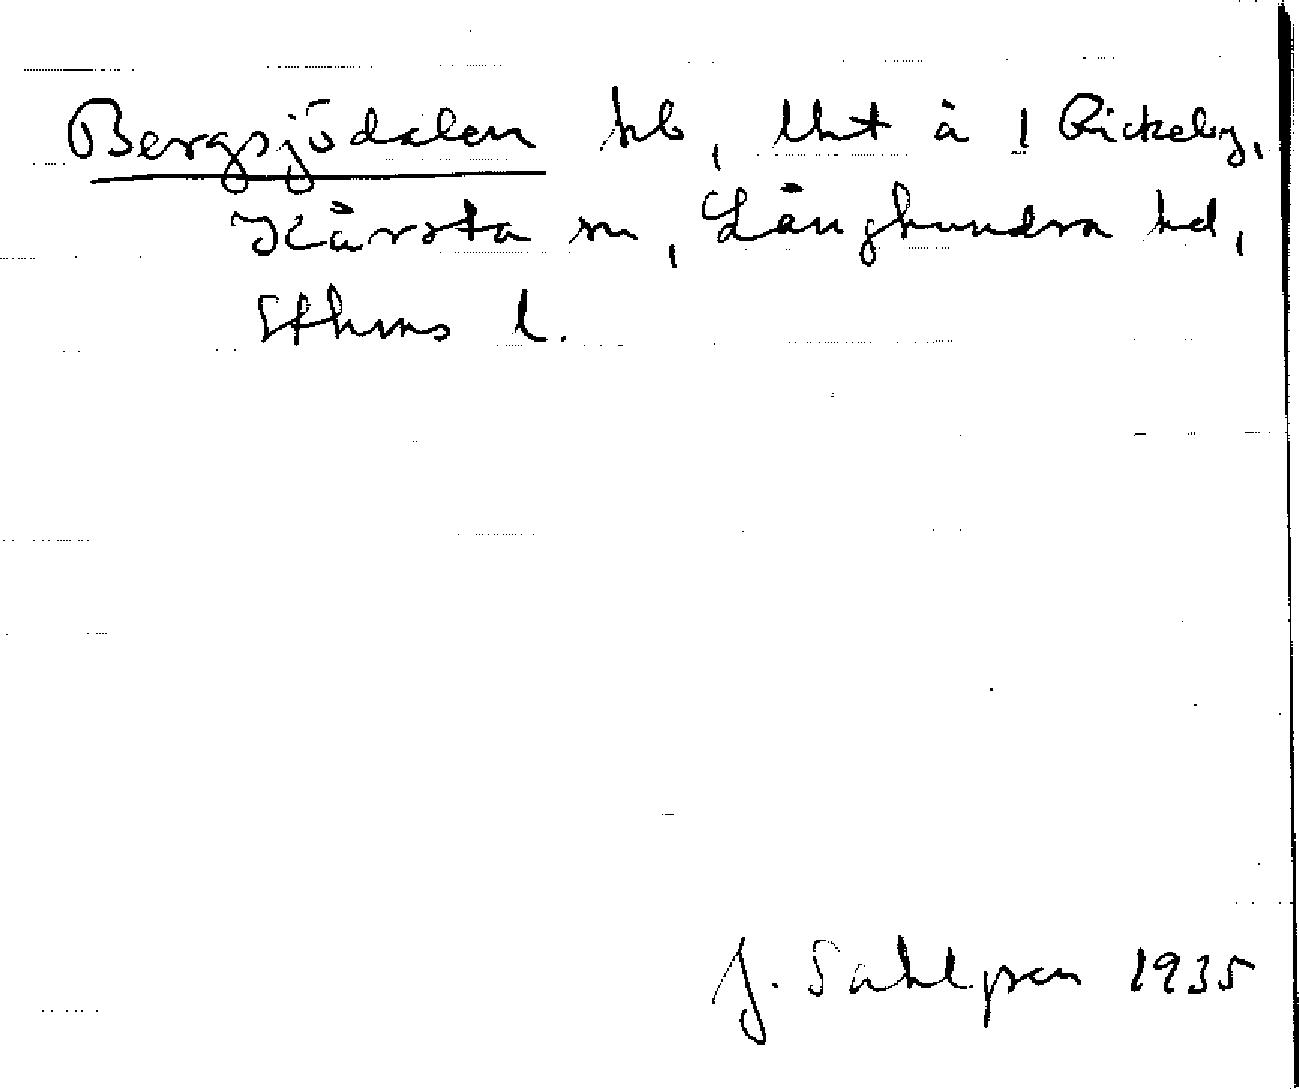 Bergsjödalen hb, Utmt å 1 Rickeby,
Kårsta sn, Långhundra hd,
Sthms l.
J. Sahlgren 1935